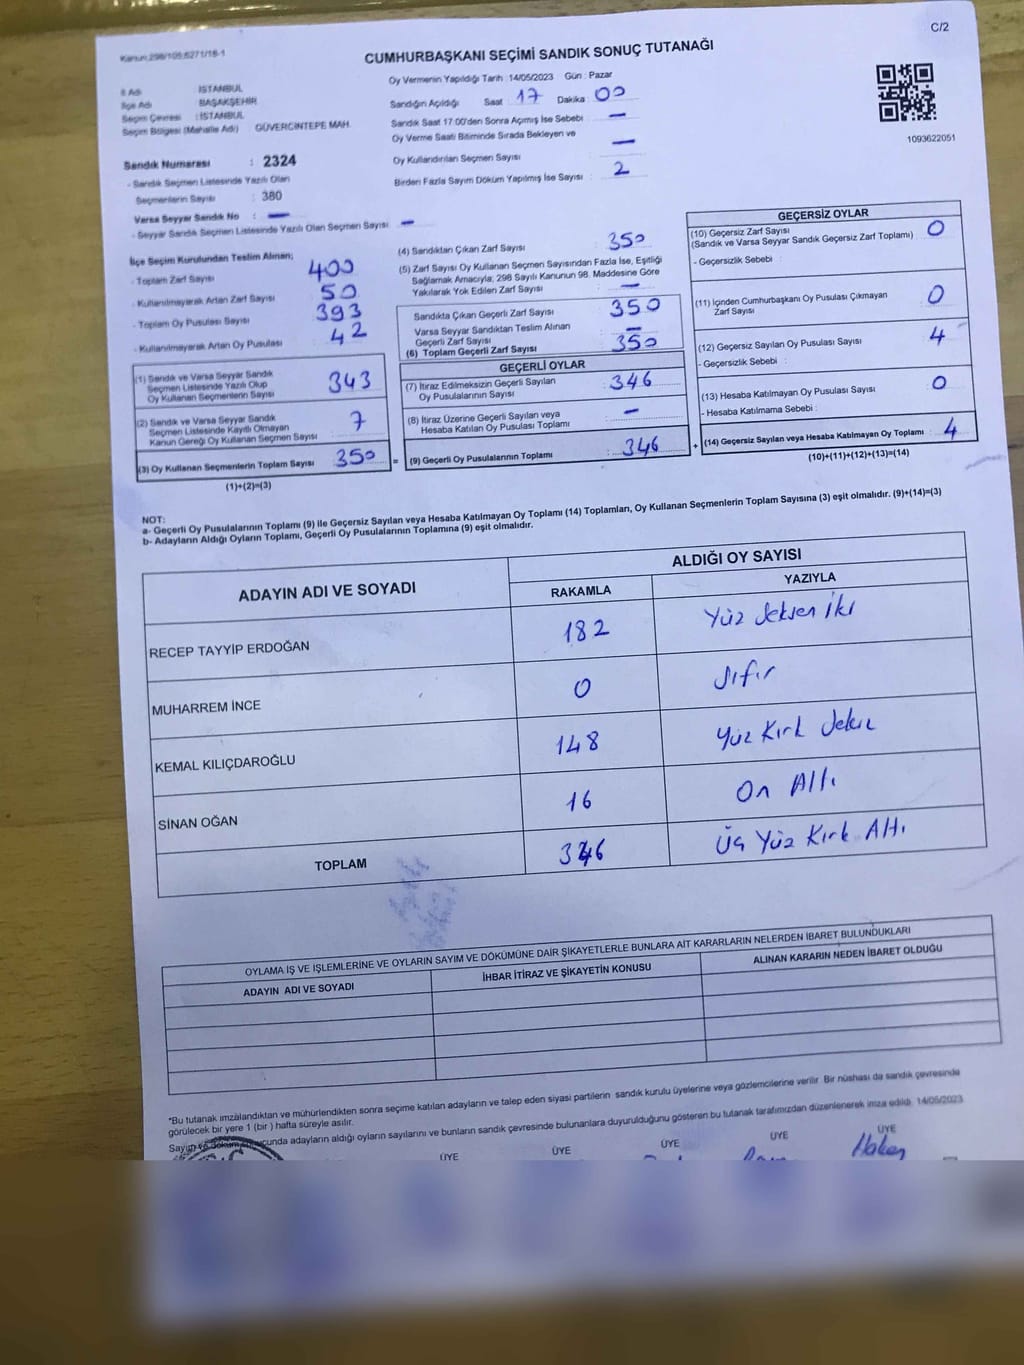 C/2
Kanun:298/105;6271/18-1
CUMHURBAŞKANI SEÇİMİ SANDIK SONUÇ TUTANAĞI
İl Adı : İSTANBUL
İlçe Adı : BAŞAKŞEHİR
Seçim Çevresi : İSTANBUL
Seçim Bölgesi (Mahalle Adı) GÜVERCİNTEPE MAH.
Sandık Numarası : 2324
- Sandık Seçmen Listesinde Yazılı Olan
Seçmenlerin Sayısı : 380
Varsa Seyyar Sandık No : —
- Seyyar Sandık Seçmen Listesinde Yazılı Olan Seçmen Sayısı —
Oy Vermenin Yapıldığı Tarih : 14/05/2023 Gün : Pazar
Sandığın Açıldığı Saat 17 Dakika 00
Sandık Saat 17:00'den Sonra Açımış İse Sebebi —
Oy Verme Saati Bitiminde Sırada Bekleyen ve
Oy Kullandırılan Seçmen Sayısı —
Birden Fazla Sayım Döküm Yapılmış İse Sayısı : 2
1093622051
İlçe Seçim Kurulundan Teslim Alınan;
- Toplam Zarf Sayısı 400
- Kullanılmayarak Artan Zarf Sayısı 50
- Toplam Oy Pusulası Sayısı 393
- Kullanılmayarak Artan Oy Pusulası 42
(1) Sandık ve Varsa Seyyar Sandık
Seçmen Listesinde Yazılı Olup
Oy Kullanan Seçmenlerin Sayısı 343
(2) Sandık ve Varsa Seyyar Sandık
Seçmen Listesinde Kayıtlı Olmayan
Kanun Gereği Oy Kullanan Seçmen Sayısı : 7
(3) Oy Kullanan Seçmenlerin Toplam Sayısı 350
(1)+(2)=(3)
(4) Sandıktan Çıkan Zarf Sayısı 350
(5) Zarf Sayısı Oy Kullanan Seçmen Sayısından Fazla İse, Eşitliği
Sağlamak Amacıyla; 298 Sayılı Kanunun 98. Maddesine Göre
Yakılarak Yok Edilen Zarf Sayısı : —
Sandıkta Çıkan Geçerli Zarf Sayısı 350
Varsa Seyyar Sandıktan Teslim Alınan
Geçerli Zarf Sayısı —
(6) Toplam Geçerli Zarf Sayısı 350
GEÇERLİ OYLAR
(7) İtiraz Edilmeksizin Geçerli Sayılan
Oy Pusulalarının Sayısı : 346
(8) İtiraz Üzerine Geçerli Sayılan veya
Hesaba Katılan Oy Pusulası Toplamı : —
= (9) Geçerli Oy Pusulalarının Toplamı : 346
GEÇERSİZ OYLAR
(10) Geçersiz Zarf Sayısı
(Sandık ve Varsa Seyyar Sandık Geçersiz Zarf Toplamı) 0
- Geçersizlik Sebebi :
(11) İçinden Cumhurbaşkanı Oy Pusulası Çıkmayan
Zarf Sayısı 0
(12) Geçersiz Sayılan Oy Pusulası Sayısı : 4
- Geçersizlik Sebebi :
(13) Hesaba Katılmayan Oy Pusulası Sayısı 0
- Hesaba Katılmama Sebebi :
+ (14) Geçersiz Sayılan veya Hesaba Katılmayan Oy Toplamı : 4
(10)+(11)+(12)+(13)=(14)
NOT:
a- Geçerli Oy Pusulalarının Toplamı (9) ile Geçersiz Sayılan veya Hesaba Katılmayan Oy Toplamı (14) Toplamları, Oy Kullanan Seçmenlerin Toplam Sayısına (3) eşit olmalıdır. (9)+(14)=(3)
b- Adayların Aldığı Oyların Toplamı, Geçerli Oy Pusulalarının Toplamına (9) eşit olmalıdır.
ADAYIN ADI VE SOYADI ALDIĞI OY SAYISI
RAKAMLA YAZIYLA
RECEP TAYYİP ERDOĞAN 182 Yüz Seksen İki
MUHARREM İNCE 0 Sıfır
KEMAL KILIÇDAROĞLU 148 Yüz Kırk Sekiz
SİNAN OĞAN 16 On Altı
TOPLAM 346 Üç Yüz Kırk Altı
OYLAMA İŞ VE İŞLEMLERİNE VE OYLARIN SAYIM VE DÖKÜMÜNE DAİR ŞİKAYETLERLE BUNLARA AİT KARARLARIN NELERDEN İBARET BULUNDUKLARI
ADAYIN ADI VE SOYADI İHBAR İTİRAZ VE ŞİKAYETİN KONUSU ALINAN KARARIN NEDEN İBARET OLDUĞU
*Bu tutanak imzalandıktan ve mühürlendikten sonra seçime katılan adayların ve talep eden siyasi partilerin sandık kurulu üyelerine veya gözlemcilerine verilir. Bir nüshası da sandık çevresinde
görülecek bir yere 1 (bir ) hafta süreyle asılır.
Sayım ve döküm adayların aldığı oyların sayılarını ve bunların sandık çevresinde bulunanlara duyurulduğunu gösteren bu tutanak tarafımızdan düzenlenerek imza edildi. 14/05/2023
ÜYE ÜYE ÜYE ÜYE ÜYE
Hakan